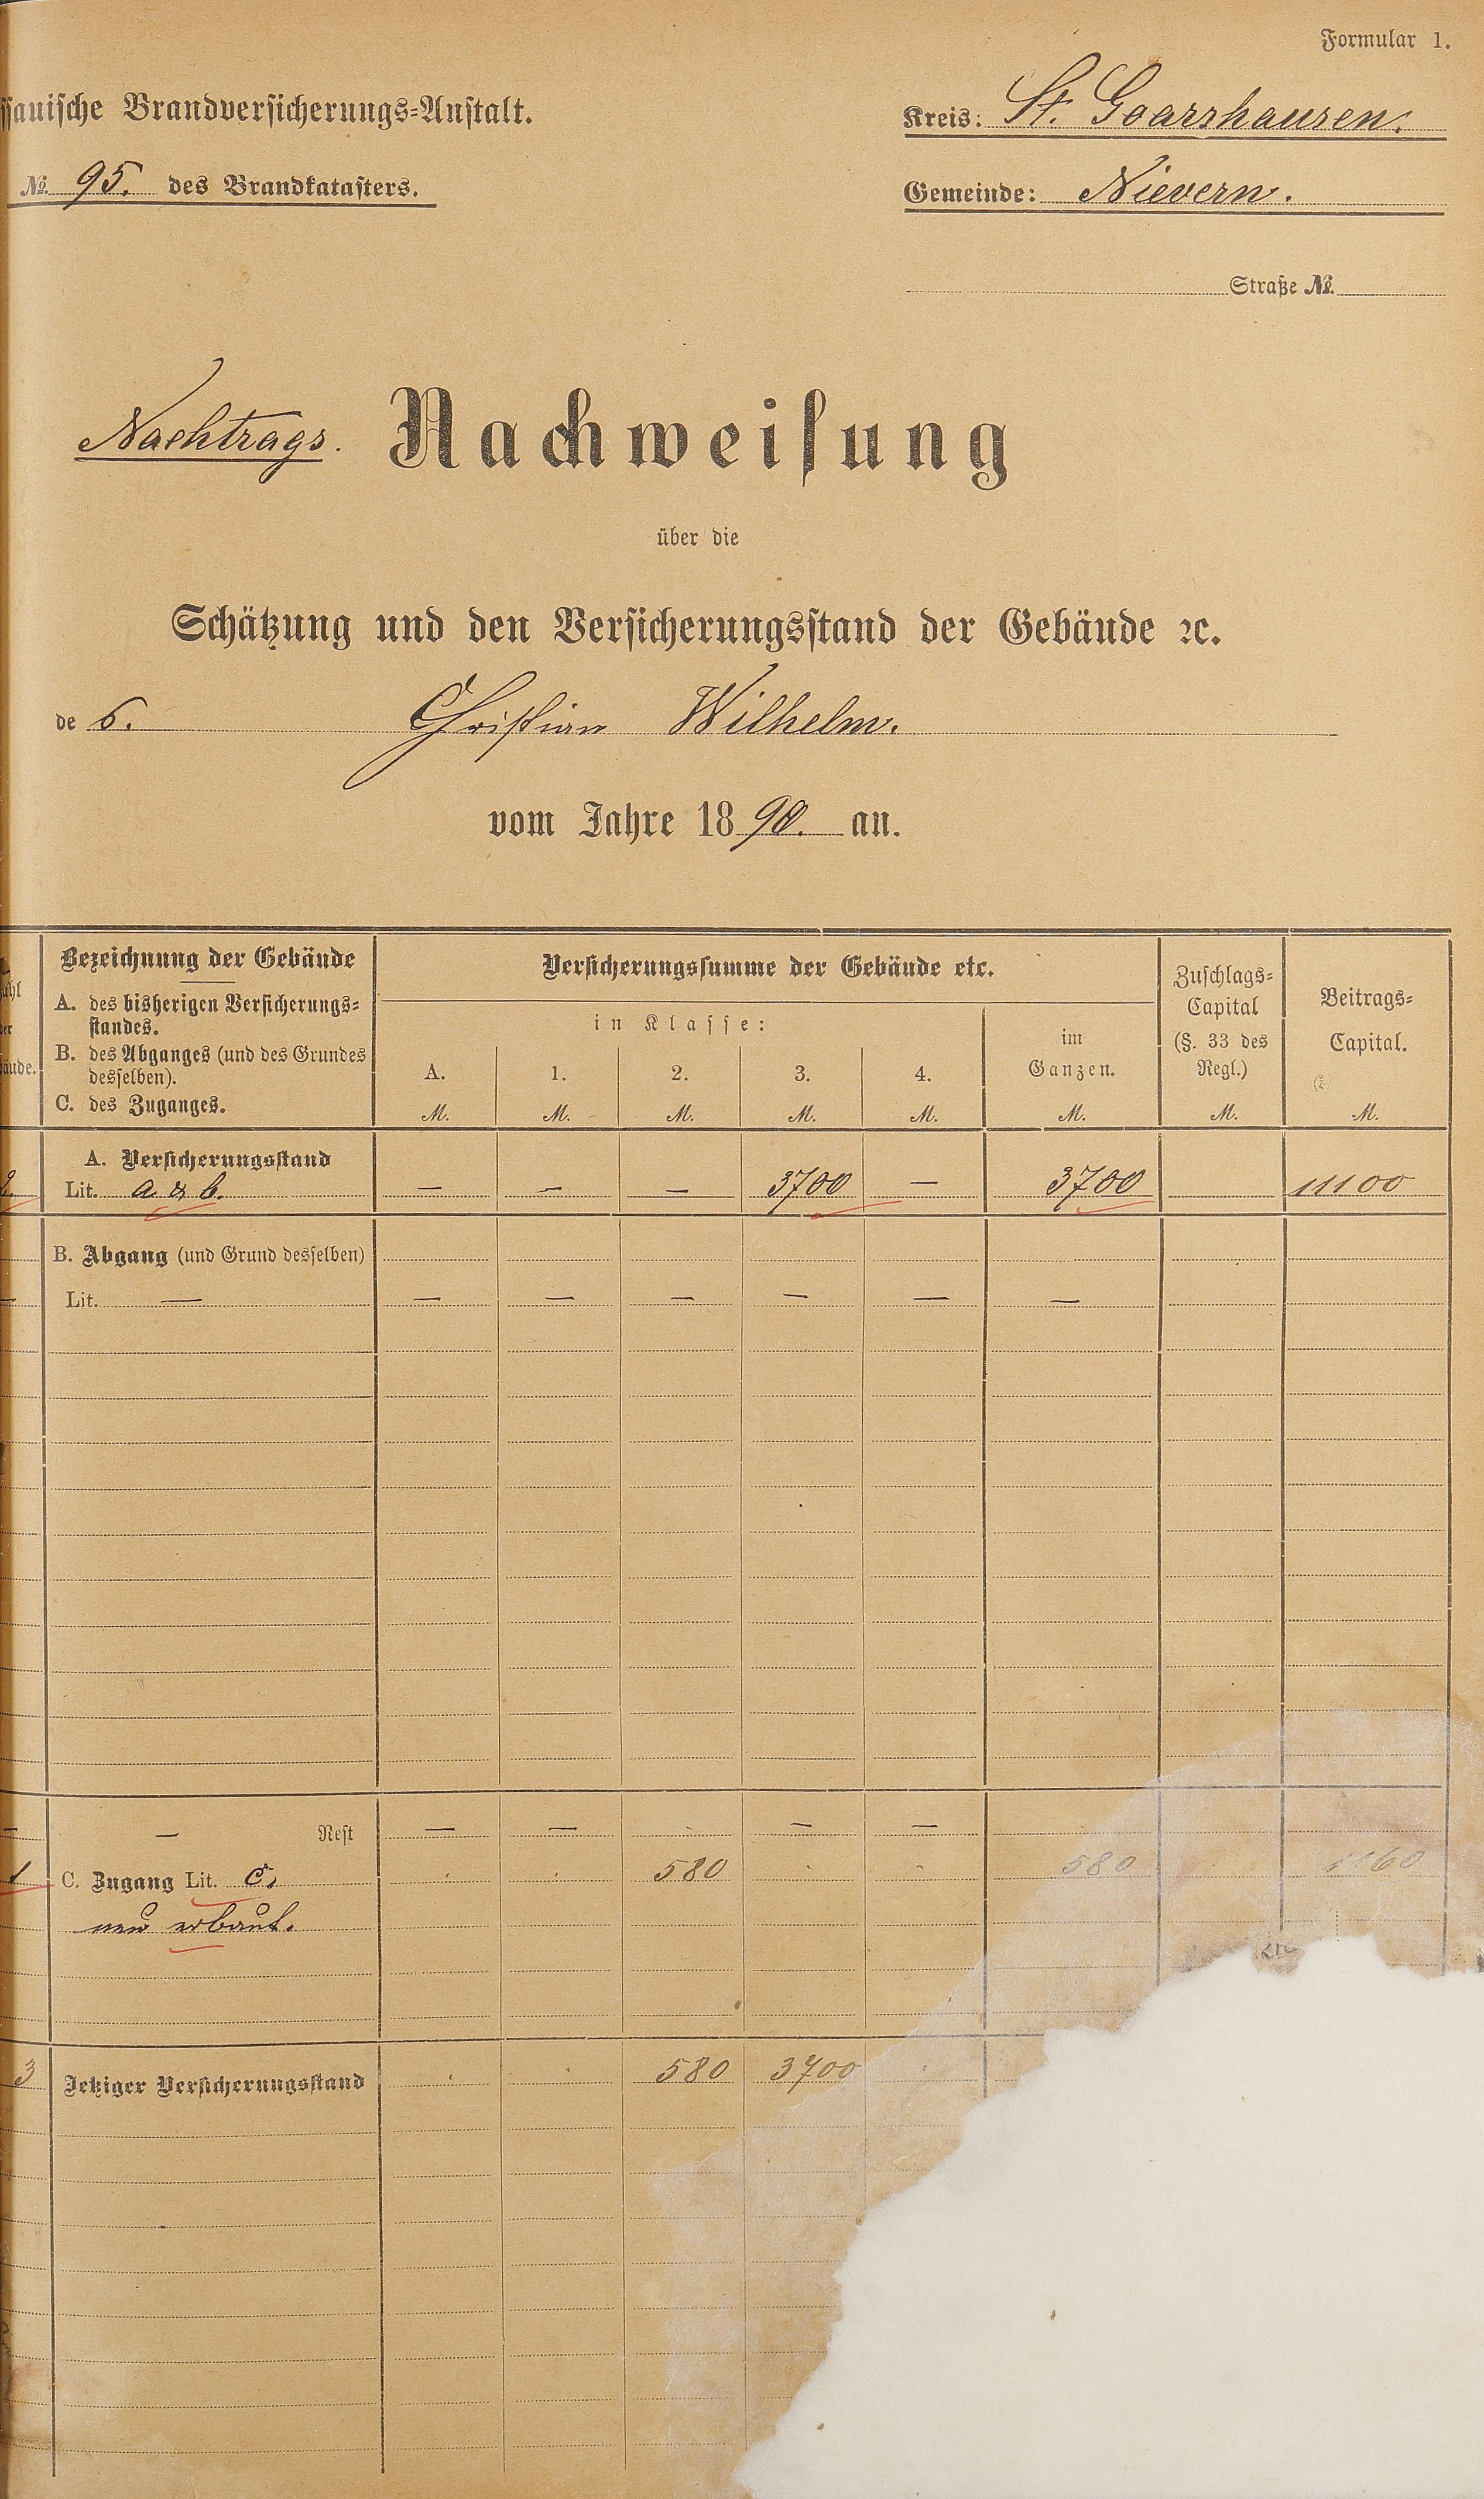 Formular 1.
ssauische Brandversicherungs=Anstalt.
Kreis: St. Goarshausen.
No. 95. des Brandkatasters.
Gemeinde: Nievern.
Straße No.
Nachtrags. Nachweisung
über die
Schätzung und den Versicherungsstand der Gebäude ꝛc.
de s. Christian Wilhelm.
vom Jahre 1890. an.
Bezeichnung der Gebäude
A. des bisherigen Versicherungs=
standes.
B. des Abganges (und des Grundes
desselben).
C. des Zuganges.
Versicherungssumme der Gebäude etc.
in Klasse:
A. 1. 2. 3. 4.
im
Ganzen.
Zuschlags=
Capital
(§. 33 des
Regl.)
Beitrags=
Capital.
M. M. M. M. M. M. M. M.
A. Versicherungsstand
2. Lit. a & b. — — — 3700 — 3700 11100
B. Abgang (und Grund desselben)
— Lit. — — — — — — —
— — Rest — — — —
1 C. Zugang Lit. c. 580 580 1160
neu erbaut.
3 Jetziger Versicherungsstand 580 3700